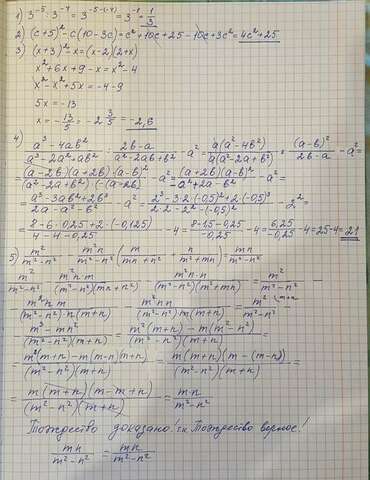 1) 3^-5 : 3^-4 = 3^-5-(-4) = 3^-1 = 1/3
2) (c+5)^2 - c(10-3c) = c^2+10c+25-10c+3c^2 = 4c^2+25
3) (x+3)^2 - x = (x-2)(2+x)
x^2+6x+9-x = x^2-4
x^2-x^2+5x = -4-9
5x = -13
x = -13/5 = -2 3/5 = -2,6
4) (a^3-4ab^2)/(a^3-2a^2-ab^2) : (2b-a)/(a^2-2ab+b^2) - a^2 = a(a^2-4b^2)/a(a^2-2a+b^2) · (a-b)^2/(2b-a) - a^2 =
= (a-2b)(a+2b)(a-b)^2/(a^2-2a+b^2)(-(a-2b)) - a^2 = (a+2b)(a-b)^2/(-a^2+2a-b^2) - a^2 =
= (a^3-3ab^2+2b^3)/(2a-a^2-b^2) - a^2 = (2^3-3·2·(-0,5)^2+2·(-0,5)^3)/(2·2-2^2-(-0,5)^2) - 2^2 =
= (8-6·0,25+2·(-0,125))/(4-4-0,25) - 4 = (8-1,5-0,25)/(-0,25) - 4 = 6,25/(-0,25) - 4 = 25-4 = 21
5) m^2/(m^2-n^2) - m^2n/(m^2-n^2) (m/(mn+n^2) + n/(m^2+mn)) = mn/(m^2-n^2)
m^2/(m^2-n^2) - m^2nm/(m^2-n^2)(mn+n^2) - m^2n·n/(m^2-n^2)(m^2+mn) = m^2/(m^2-n^2) -
- m^2nm/(m^2-n^2)·n(m+n) - m^2nn/(m^2-n^2)·m(m+n) = m^2 \m+n/(m^2-n^2) -
= m(m+n)(m-m+n)/(m^2-n^2)(m+n) = m·n/(m^2-n^2)
Тождество доказано! Тождество верное!
mn/(m^2-n^2) = mn/(m^2-n^2)